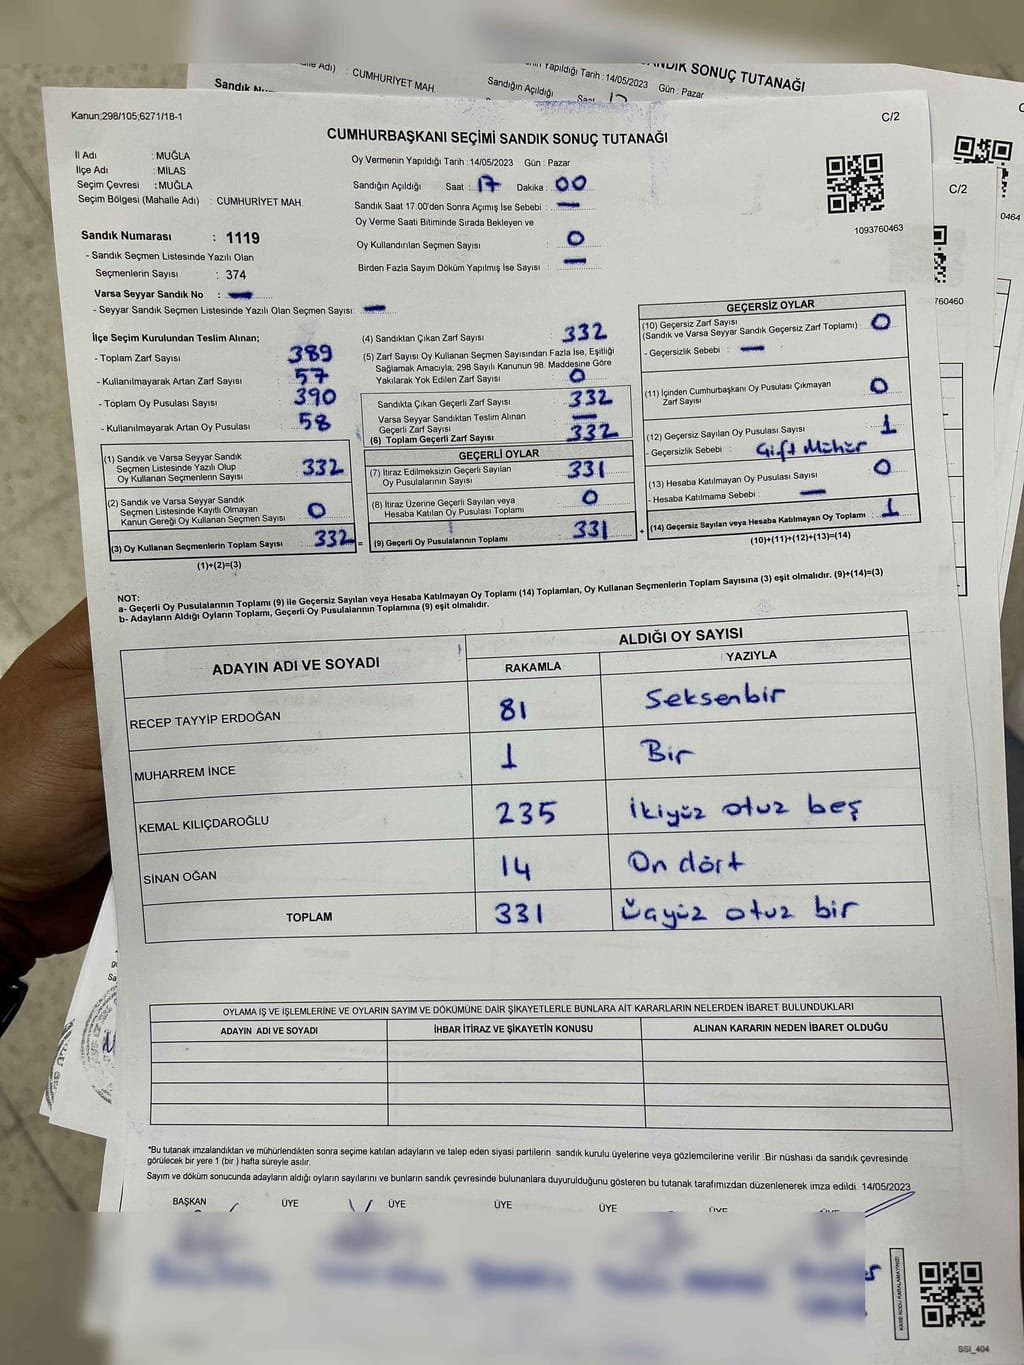 Sandık Nu
CUMHURİYET MAH.
Yapıldığı Tarih :14/05/2023 Gün : Pazar
Sandığın Açıldığı
SANDIK SONUÇ TUTANAĞI
Kanun;298/105;6271/18-1
C/2
CUMHURBAŞKANI SEÇİMİ SANDIK SONUÇ TUTANAĞI
İl Adı : MUĞLA
İlçe Adı : MİLAS
Seçim Çevresi : MUĞLA
Seçim Bölgesi (Mahalle Adı) : CUMHURİYET MAH.
Oy Vermenin Yapıldığı Tarih :14/05/2023 Gün : Pazar
Sandığın Açıldığı Saat : 17 Dakika : 00
Sandık Saat 17:00'den Sonra Açımış İse Sebebi : —
Oy Verme Saati Bitiminde Sırada Bekleyen ve
Oy Kullandırılan Seçmen Sayısı : 0
Birden Fazla Sayım Döküm Yapılmış İse Sayısı : —
1093760463
C/2
0464
760460
Sandık Numarası : 1119
- Sandık Seçmen Listesinde Yazılı Olan
Seçmenlerin Sayısı : 374
Varsa Seyyar Sandık No : —
- Seyyar Sandık Seçmen Listesinde Yazılı Olan Seçmen Sayısı: —
İlçe Seçim Kurulundan Teslim Alınan;
- Toplam Zarf Sayısı : 389
- Kullanılmayarak Artan Zarf Sayısı : 57
- Toplam Oy Pusulası Sayısı : 390
- Kullanılmayarak Artan Oy Pusulası : 58
(1) Sandık ve Varsa Seyyar Sandık
Seçmen Listesinde Yazılı Olup
Oy Kullanan Seçmenlerin Sayısı : 332
(2) Sandık ve Varsa Seyyar Sandık
Seçmen Listesinde Kayıtlı Olmayan
Kanun Gereği Oy Kullanan Seçmen Sayısı : 0
(3) Oy Kullanan Seçmenlerin Toplam Sayısı : 332 =
(1)+(2)=(3)
(4) Sandıktan Çıkan Zarf Sayısı : 332
(5) Zarf Sayısı Oy Kullanan Seçmen Sayısından Fazla İse, Eşitliği
Sağlamak Amacıyla, 298 Sayılı Kanunun 98. Maddesine Göre
Yakılarak Yok Edilen Zarf Sayısı : 0
Sandıkta Çıkan Geçerli Zarf Sayısı : 332
Varsa Seyyar Sandıktan Teslim Alınan
Geçerli Zarf Sayısı : —
(6) Toplam Geçerli Zarf Sayısı : 332
GEÇERLİ OYLAR
(7) İtiraz Edilmeksizin Geçerli Sayılan
Oy Pusulalarının Sayısı : 331
(8) İtiraz Üzerine Geçerli Sayılan veya
Hesaba Katılan Oy Pusulası Toplamı : 0
(9) Geçerli Oy Pusulalarının Toplamı : 331 +
GEÇERSİZ OYLAR
(10) Geçersiz Zarf Sayısı
(Sandık ve Varsa Seyyar Sandık Geçersiz Zarf Toplamı) : 0
- Geçersizlik Sebebi : —
(11) İçinden Cumhurbaşkanı Oy Pusulası Çıkmayan
Zarf Sayısı : 0
(12) Geçersiz Sayılan Oy Pusulası Sayısı : 1
- Geçersizlik Sebebi : Çift Mühür
(13) Hesaba Katılmayan Oy Pusulası Sayısı : 0
- Hesaba Katılmama Sebebi : —
(14) Geçersiz Sayılan veya Hesaba Katılmayan Oy Toplamı : 1
(10)+(11)+(12)+(13)=(14)
NOT:
a- Geçerli Oy Pusulalarının Toplamı (9) ile Geçersiz Sayılan veya Hesaba Katılmayan Oy Toplamı (14) Toplamları, Oy Kullanan Seçmenlerin Toplam Sayısına (3) eşit olmalıdır. (9)+(14)=(3)
b- Adayların Aldığı Oyların Toplamı, Geçerli Oy Pusulalarının Toplamına (9) eşit olmalıdır.
ADAYIN ADI VE SOYADI
ALDIĞI OY SAYISI
RAKAMLA YAZIYLA
RECEP TAYYİP ERDOĞAN 81 Seksenbir
MUHARREM İNCE 1 Bir
KEMAL KILIÇDAROĞLU 235 İkiyüz otuz beş
SİNAN OĞAN 14 On dört
TOPLAM 331 Üçyüz otuz bir
OYLAMA İŞ VE İŞLEMLERİNE VE OYLARIN SAYIM VE DÖKÜMÜNE DAİR ŞİKAYETLERLE BUNLARA AİT KARARLARIN NELERDEN İBARET BULUNDUKLARI
ADAYIN ADI VE SOYADI İHBAR İTİRAZ VE ŞİKAYETİN KONUSU ALINAN KARARIN NEDEN İBARET OLDUĞU
*Bu tutanak imzalandıktan ve mühürlendikten sonra seçime katılan adayların ve talep eden siyasi partilerin sandık kurulu üyelerine veya gözlemcilerine verilir .Bir nüshası da sandık çevresinde
görülecek bir yere 1 (bir ) hafta süreyle asılır.
Sayım ve döküm sonucunda adayların aldığı oyların sayılarını ve bunların sandık çevresinde bulunanlara duyurulduğunu gösteren bu tutanak tarafımızdan düzenlenerek imza edildi. 14/05/2023
BAŞKAN ÜYE ÜYE ÜYE ÜYE ÜYE
KARE KODU KARALAMAYINIZ!
SSİ_404